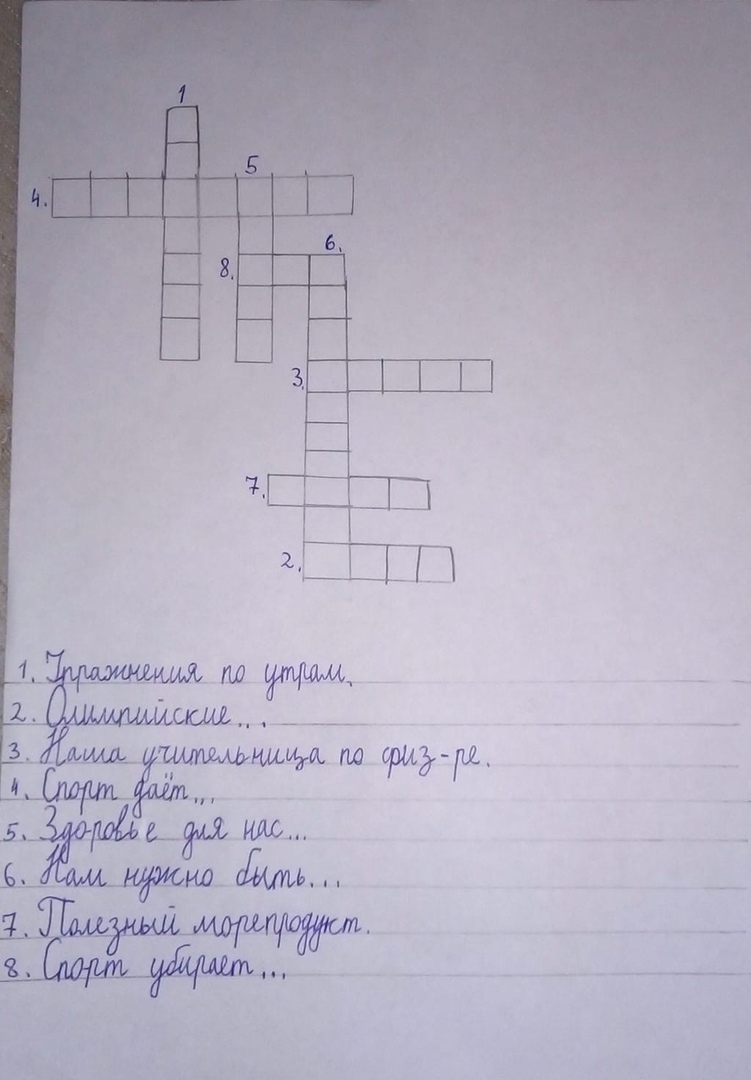 1
5
4.
6.
8.
3.
7.
2.
1. Упражнения по утрам.
2. Олимпийские...
3. Наша учительница по физ-ре.
4. Спорт даёт...
5. Здоровье для нас...
6. Нам нужно быть...
7. Полезный морепродукт.
8. Спорт убирает...